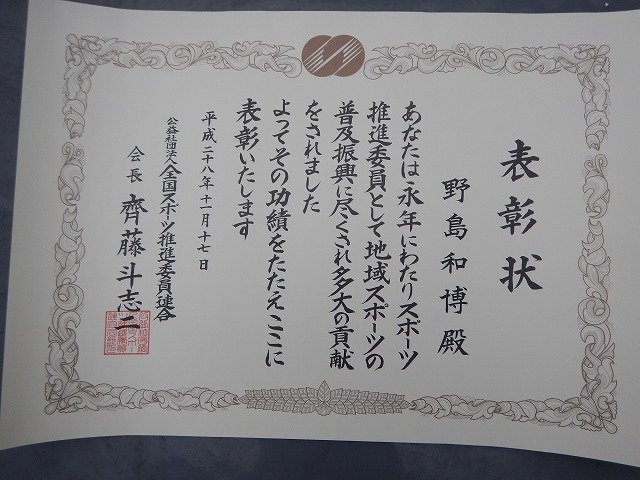 表彰状
野島和博殿
あなたは永年にわたりスポーツ
推進委員として地域スポーツの
普及振興に尽くされ多大の貢献
をされました
よってその功績をたたえここに
表彰いたします
平成二十八年十一月十七日
公益社団法人全国スポーツ推進委員連合
会長 齊藤斗志二